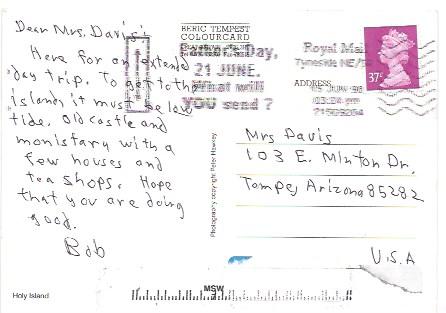 Dear Mrs. Davis:
Here for an extended
day trip. To get to the
islands it must be low
tide. Old castle and
monistary with a
few houses and
tea shops. Hope
that you are doing
good.
Bob
Holy Island
BERIC TEMPEST
COLOURCARD
Father's Day,
21 JUNE.
What will
YOU send ?
Photography copyright Peter Hawkey
Royal Mail
Tyneside NE/
ADDRESS
JUN
37
Mrs Davis
103 E. Minton Dr.
Tempey Arizona 85282
U.S.A
MSW